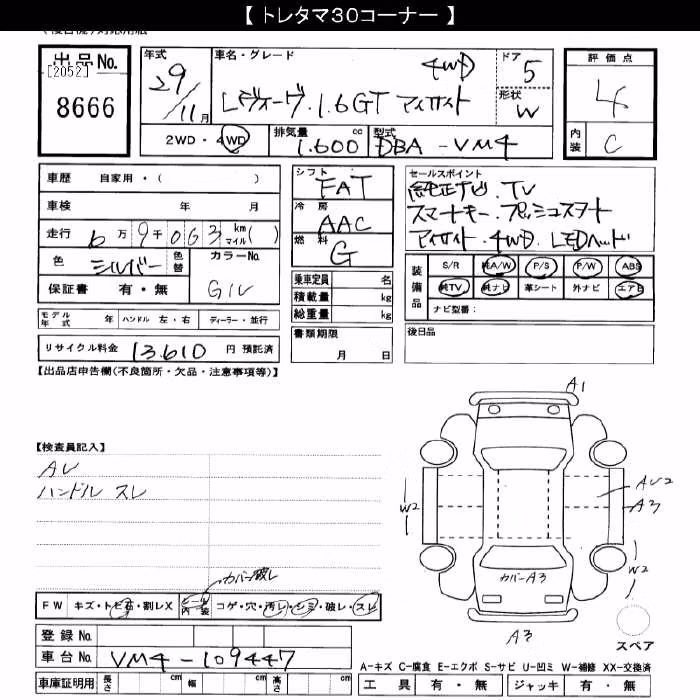 【 トレタマ30コーナー 】
出品No.
[2052]
8666
年式
29/11月
車名・グレード
レヴォーグ・1.6GT アイサイト
4WD
ドア
5
形状
W
評価点
4
内装
C
2WD・4WD
排気量
1.600 cc
型式
DBA-VM4
車歴 自家用・( )
車検 年 月
走行 6万9千063 km マイル( )
色 シルバー 色替 カラーNo.
G1U
保証書 有・無
モデル年式 年 ハンドル 左・右 ディーラー・並行
リサイクル料金 13.610 円 預託済
シフト
FAT
冷房
AAC
燃料
G
乗車定員 名
積載量 kg
総重量 kg
書類期限
月 日
セールスポイント
純正ナビ・TV
スマートキー・プッシュスタート
アイサイト・4WD・LEDヘッド
装備品
S/R 純A/W P/S P/W ABS
純TV 純ナビ 革シート 外ナビ エアB
ナビ型番:
後日品
【出品店申告欄(不良箇所・欠品・注意事項等)】
【検査員記入】
AU
ハンドル スレ
カバー破レ
FW キズ・トビ石・割レX 内装 コゲ・穴・汚レ・シミ・破レ・スレ
登録No.
車台No. VM4-109447
車庫証明用 長さ cm 幅 cm 高さ cm
A1
W2
AU2
A3
W2
カバーA3
A3
スペア
A-キズ C-腐食 E-エクボ S-サビ U-凹ミ W-補修 XX-交換済
工具 有・無 ジャッキ 有・無